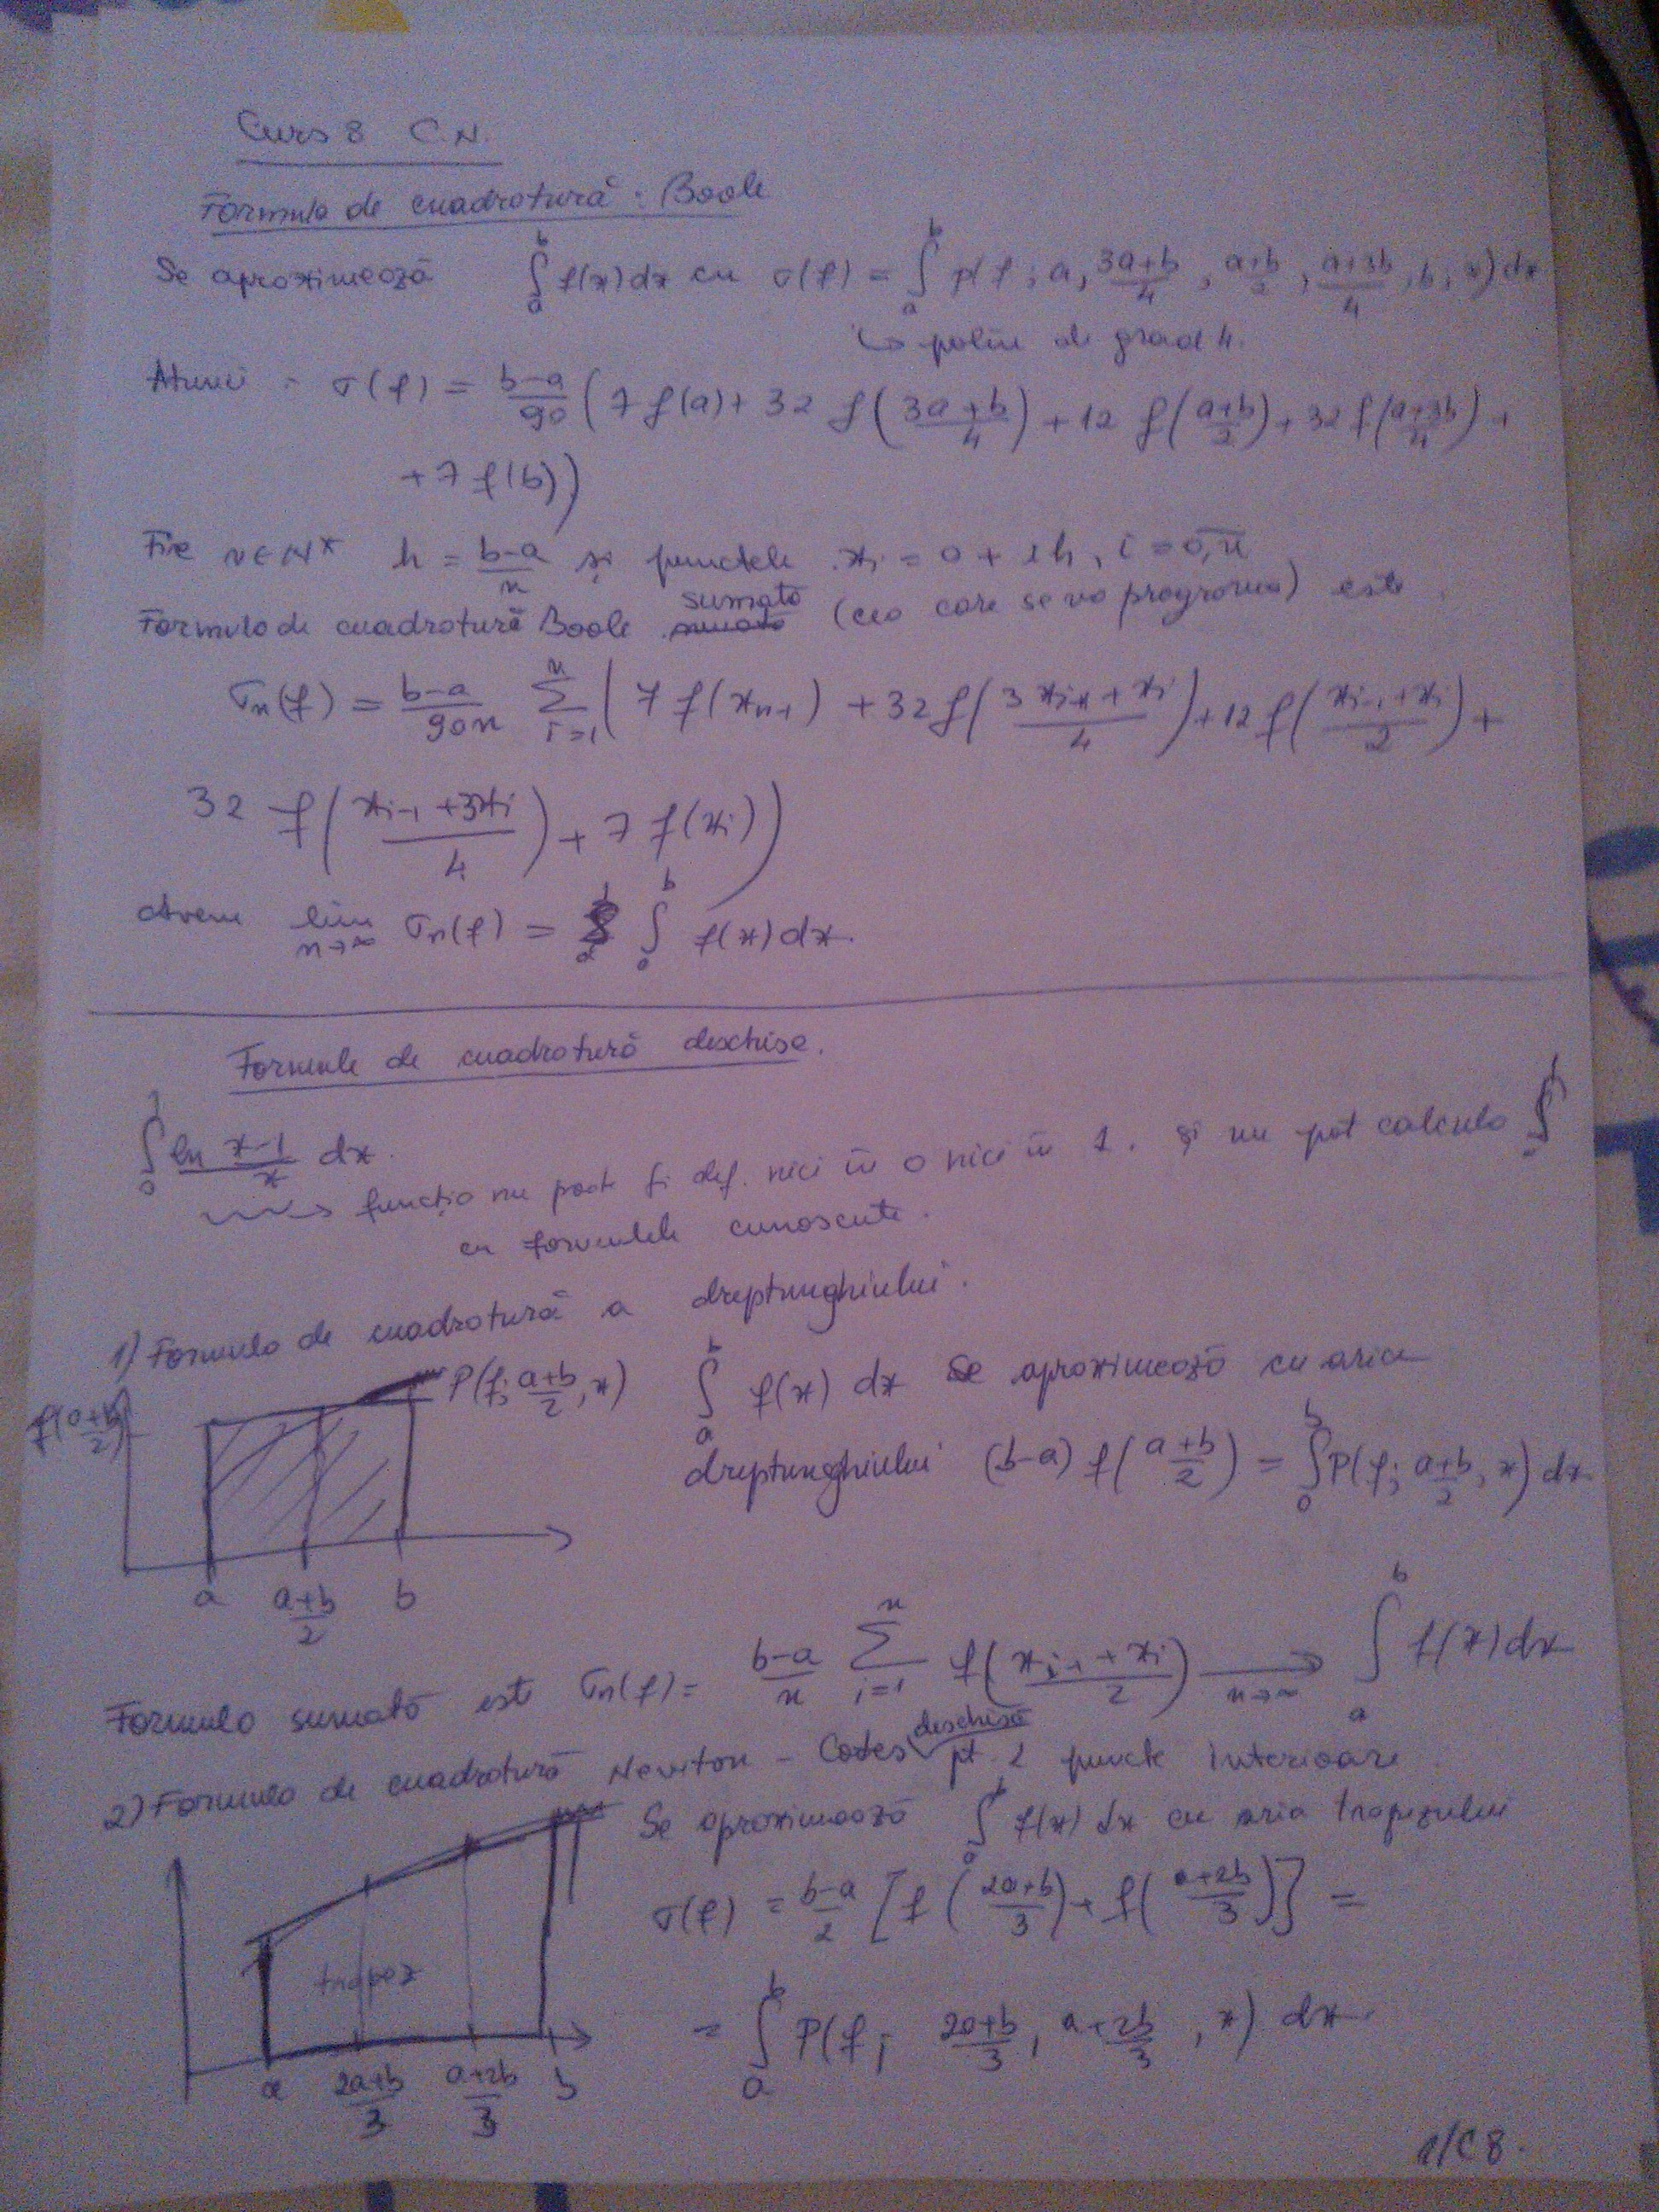 Curs 8 C.N.
Formula de cuadratură : Boole
Se aproximează ∫_a^b f(x)dx cu σ(f) = ∫_a^b p(f; a, (3a+b)/4, (a+b)/2, (a+3b)/4, b; x)dx
↳ polin de grad 4.
Atunci : σ(f) = (b-a)/90 (7 f(a) + 32 f((3a+b)/4) + 12 f((a+b)/2) + 32 f((a+3b)/4) +
+ 7 f(b))
Fie n∈N* h = (b-a)/n și punctele x_i = a + ih, i = 0,n
Formula de cuadratură Boole sumată (cea care se va programa) este
σ_n(f) = (b-a)/90n Σ_{i=1}^n (7 f(x_{n-1}) + 32 f((3x_{i-1} + x_i)/4) + 12 f((x_{i-1} + x_i)/2) +
32 f((x_{i-1} + 3x_i)/4) + 7 f(x_i))
Avem lim_{n→∞} σ_n(f) = ∫_a^b f(x)dx.
Formule de cuadratură deschise.
∫_0^1 ln (x-1)/x dx.
→ funcția nu poate fi def. nici în 0 nici în 1. și nu pot calcula ∫
cu formulele cunoscute.
1) Formula de cuadratură a dreptunghiului.
f((a+b)/2) P(f; (a+b)/2, x) ∫_a^b f(x) dx se aproximează cu aria
dreptunghiului (b-a) f((a+b)/2) = ∫_a^b P(f; (a+b)/2, x) dx
a (a+b)/2 b
Formula sumată este σ_n(f) = (b-a)/n Σ_{i=1}^n f((x_{i-1} + x_i)/2) →_{n→∞} ∫_a^b f(x)dx
2) Formula de cuadratură Newton - Cotes deschisă pt. 2 puncte interioare
Se aproximează ∫_a^b f(x) dx cu aria trapezului
σ(f) = (b-a)/2 [f((2a+b)/3) + f((a+2b)/3)] =
trapez
= ∫_a^b P(f; (2a+b)/3, (a+2b)/3, x) dx.
a (2a+b)/3 (a+2b)/3 b
1/C8.